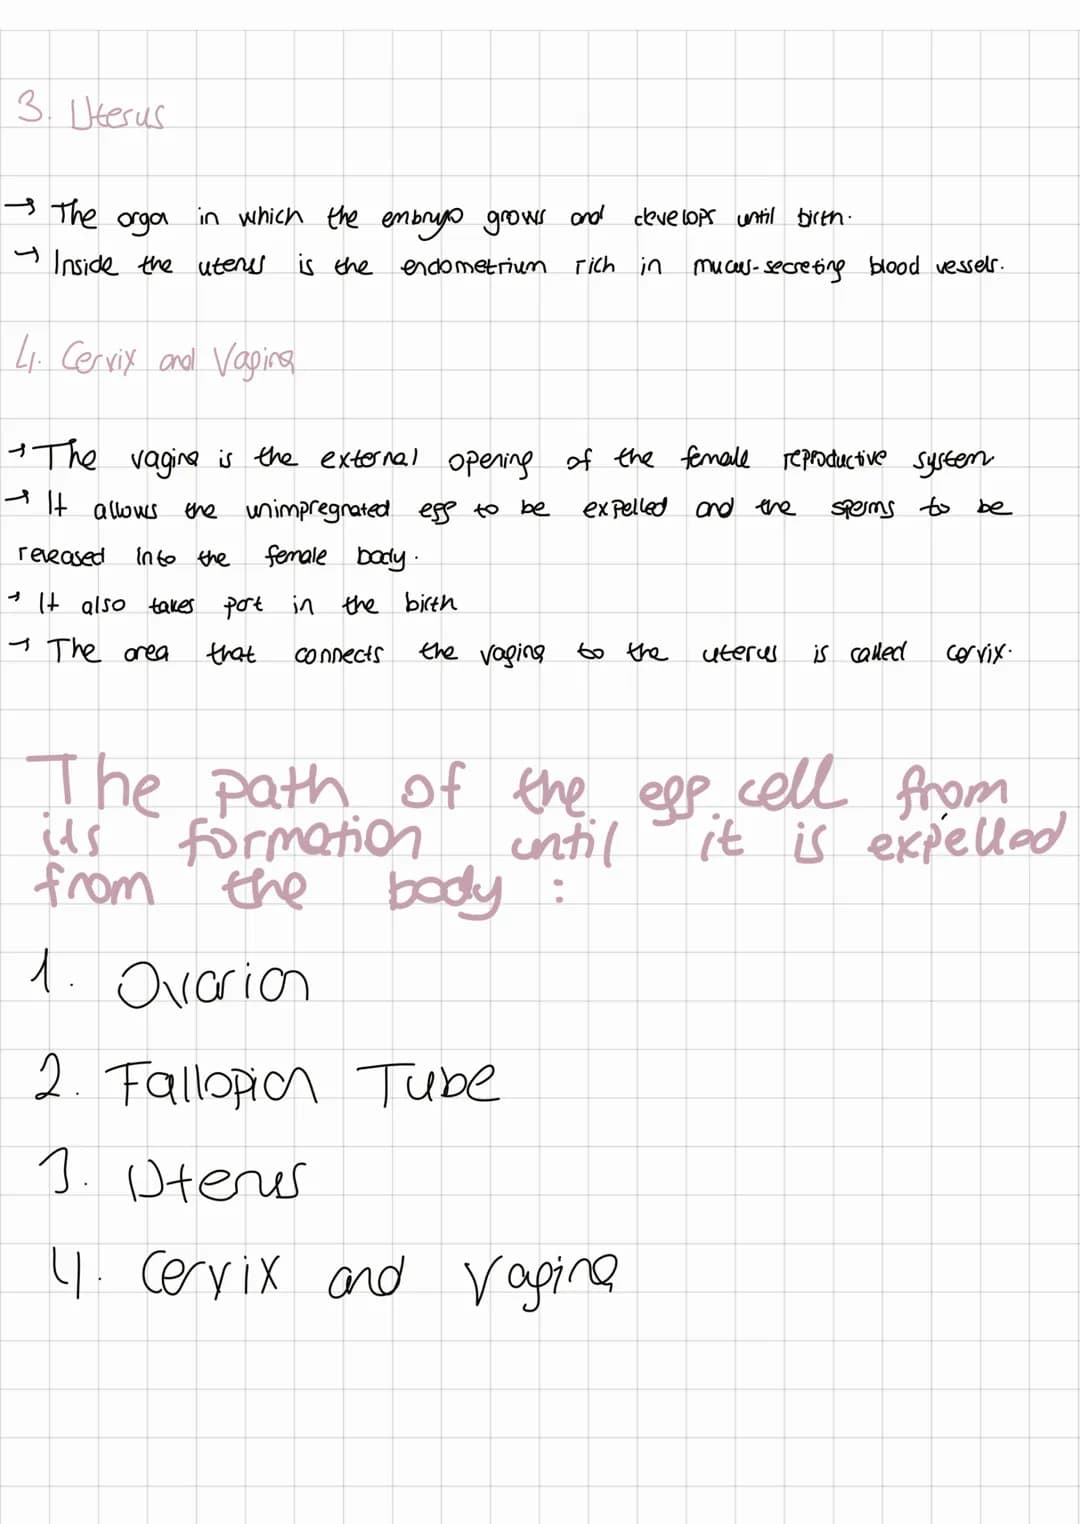 3. Uterus
→ The orga in which the embryo grows and develops until birth.
→ Inside the uterus is the endometrium rich in mucus-secreting blood vessels.
4. Cervix and Vagina
→ The vagina is the external opening of the female reproductive system
→ It allows the unimpregnated egg to be expelled and the sperms to be
released into the female body.
→ It also takes part in the birth
→ The area that connects the vagina to the uterus is called cervix.
The path of the egg cell from
its formation until it is expelled
from the body :
1. Ovarian
2. Fallopian Tube
3. Uterus
4. Cervix and Vagina